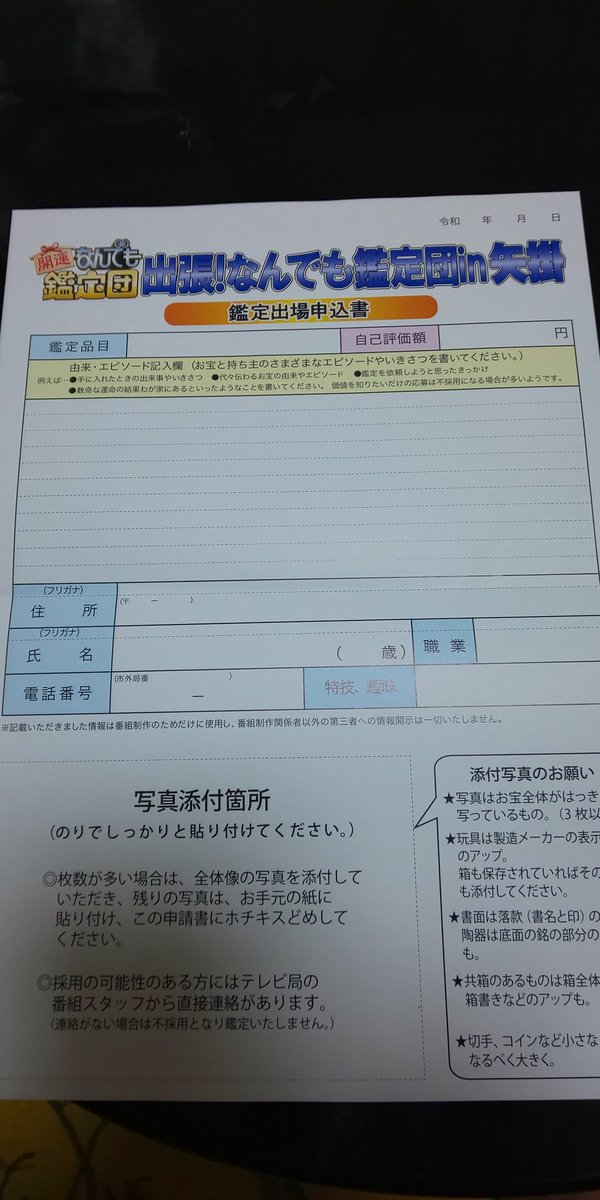 令和　　年　　月　　日
開運なんでも鑑定団
出張!なんでも鑑定団in矢掛
鑑定出場申込書
鑑定品目
自己評価額
円
由来・エピソード記入欄（お宝と持ち主のさまざまなエピソードやいきさつを書いてください。）
例えば…●手に入れたときの出来事やいきさつ　●代々伝わるお宝の由来やエピソード　●鑑定を依頼しようと思ったきっかけ
●数奇な運命の結果わが家にあるといったようなことを書いてください。 価値を知りたいだけの応募は不採用になる場合が多いようです。
（フリガナ）
住　所
（〒　　ー　　）
（フリガナ）
氏　名
（　　歳）
職　業
電話番号
（市外局番　　　）
ー
特技、趣味
※記載いただきました情報は番組制作のためだけに使用し、番組制作関係者以外の第三者への情報開示は一切いたしません。
写真添付箇所
（のりでしっかりと貼り付けてください。）
◎枚数が多い場合は、全体像の写真を添付して
いただき、残りの写真は、お手元の紙に
貼り付け、この申請書にホチキスどめして
ください。
◎採用の可能性のある方にはテレビ局の
番組スタッフから直接連絡があります。
（連絡がない場合は不採用となり鑑定いたしません。）
添付写真のお願い
★写真はお宝全体がはっき
写っているもの。（3枚以
★玩具は製造メーカーの表示
のアップ。
箱も保存されていればその
も添付してください。
★書面は落款（書名と印）の
陶器は底面の銘の部分の
も。
★共箱のあるものは箱全体
箱書きなどのアップも。
★切手、コインなど小さな
なるべく大きく。